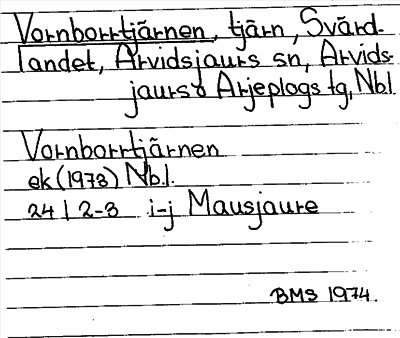 Vornborrtjärnen, tjärn, Svärd-
landet, Arvidsjaurs sn, Arvids-
jaurs o Arjeplogs tg, Nbl.
Vornborrtjärnen
ek (1973) Nb.l.
24 I 2-3 i-j Mausjaure
BMS 1974.